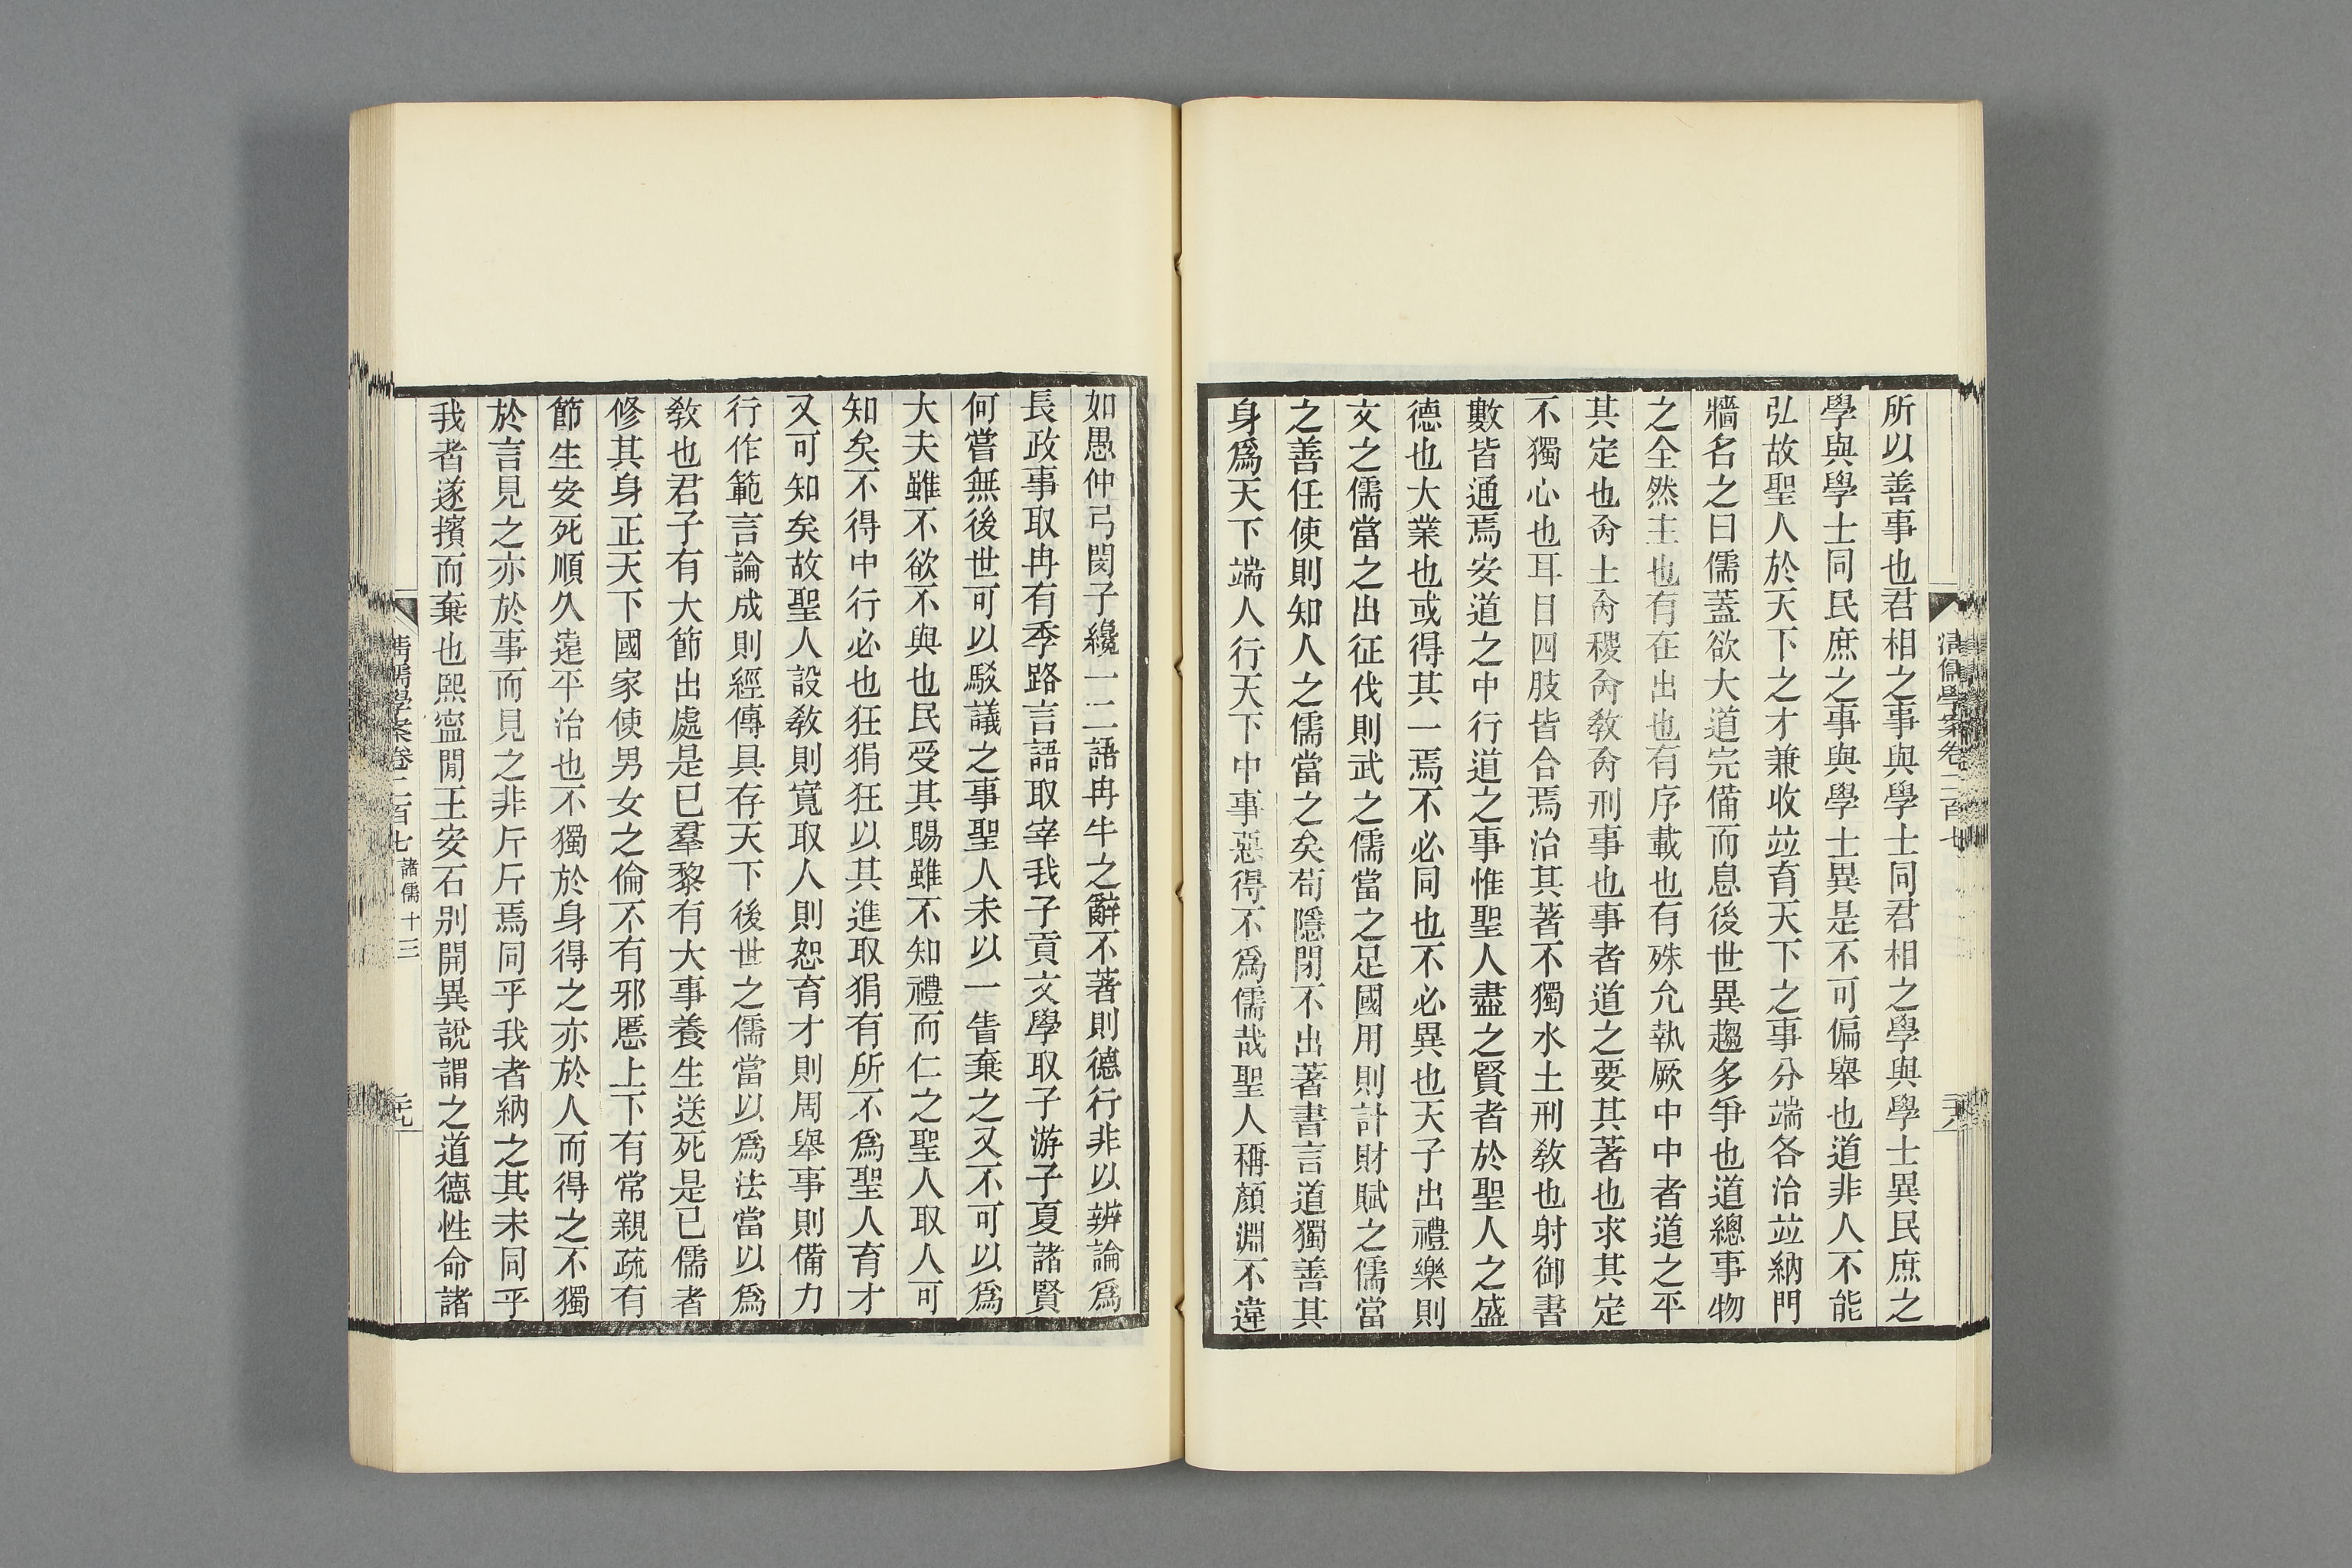 清儒學案卷二百七
所以善事也君相之事與學士同君相之學與學士異民庶之
學與學士同民庶之事與學士異是不可偏舉也道非人不能
弘故聖人於天下之才兼收竝育天下之事分端各治竝納門
牆名之曰儒蓋欲大道完備而息後世異趨多爭也道總事物
之全然主也有在出也有序載也有殊允執厥中中者道之平
其定也㕯土㕯稷㕯敎㕯刑事也事者道之要其著也求其定
不獨心也耳目四肢皆合焉治其著不獨水土刑敎也射御書
數皆通焉安道之中行道之事惟聖人盡之賢者於聖人之盛
德也大業也或得其一焉不必同也不必異也天子出禮樂則
文之儒當之出征伐則武之儒當之足國用則計財賦之儒當
之善任使則知人之儒當之矣苟隱閉不出著書言道獨善其
身爲天下端人行天下中事惡得不爲儒哉聖人稱顏淵不違
如愚仲弓閔子纔一二語冉牛之辭不著則德行非以辨論爲
長政事取冉有季路言語取宰我子貢文學取子游子夏諸賢
何嘗無後世可以駁議之事聖人未以一眚棄之又不可以爲
大夫雖不欲不與也民受其賜雖不知禮而仁之聖人取人可
知矣不得中行必也狂狷狂以其進取狷有所不爲聖人育才
又可知矣故聖人設敎則寬取人則恕育才則周舉事則備力
行作範言論成則經傳具存天下後世之儒當以爲法當以爲
敎也君子有大節出處是已羣黎有大事養生送死是已儒者
修其身正天下國家使男女之倫不有邪慝上下有常親疏有
節生安死順久遠平治也不獨於身得之亦於人而得之不獨
於言見之亦於事而見之非斤斤焉同乎我者納之其未同乎
我者遂擯而棄也熙寍閒王安石別開異說謂之道德性命諸
清儒學案卷二百七 諸儒十三